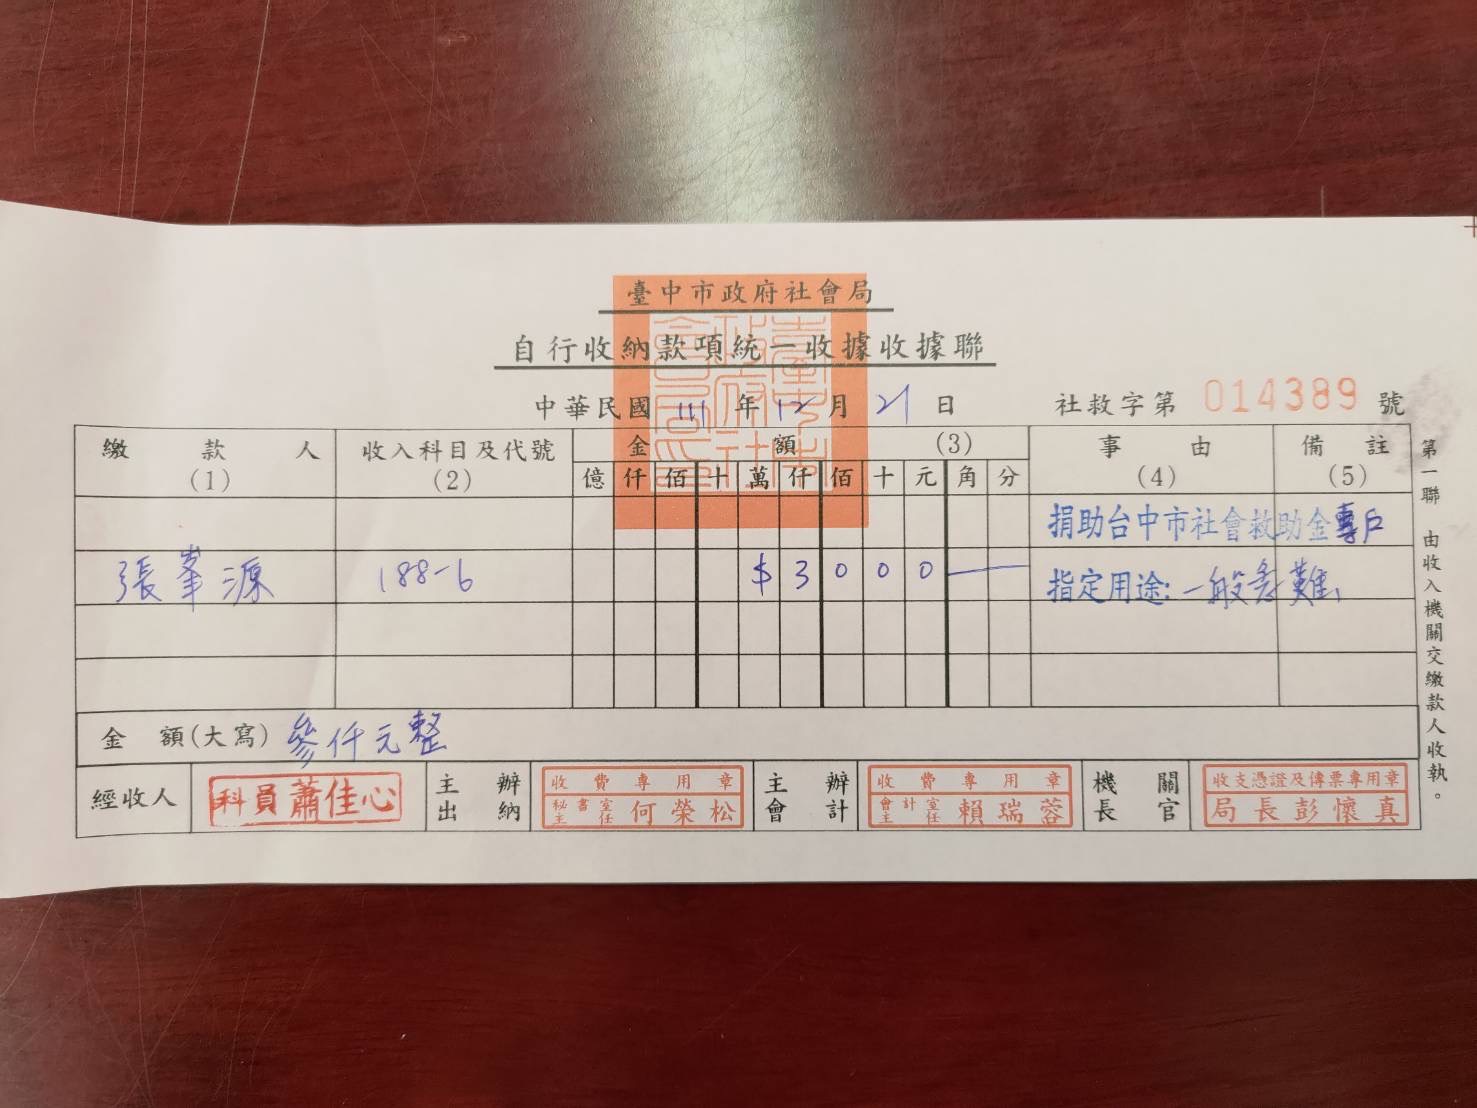 臺中市政府社會局
自行收納款項統一收據收據聯
中華民國 111 年 12 月 21 日 社救字第 014389 號
繳款人 收入科目及代號 金額 (3) 事由 備註
(1) (2) 億 仟 佰 十 萬 仟 佰 十 元 角 分 (4) (5)
捐助台中市社會救助金專戶
張峯源 188-6 $ 3 0 0 0 — 指定用途:一般急難
金額(大寫) 參仟元整
經收人 科員蕭佳心 主辦出納 收費專用章 秘書室主任 何榮松 主辦會計 收費專用章 會計室主任 賴瑞蓉 機關長官 收支憑證及傳票專用章 局長彭懷真
第一聯 由收入機關交繳款人收執。